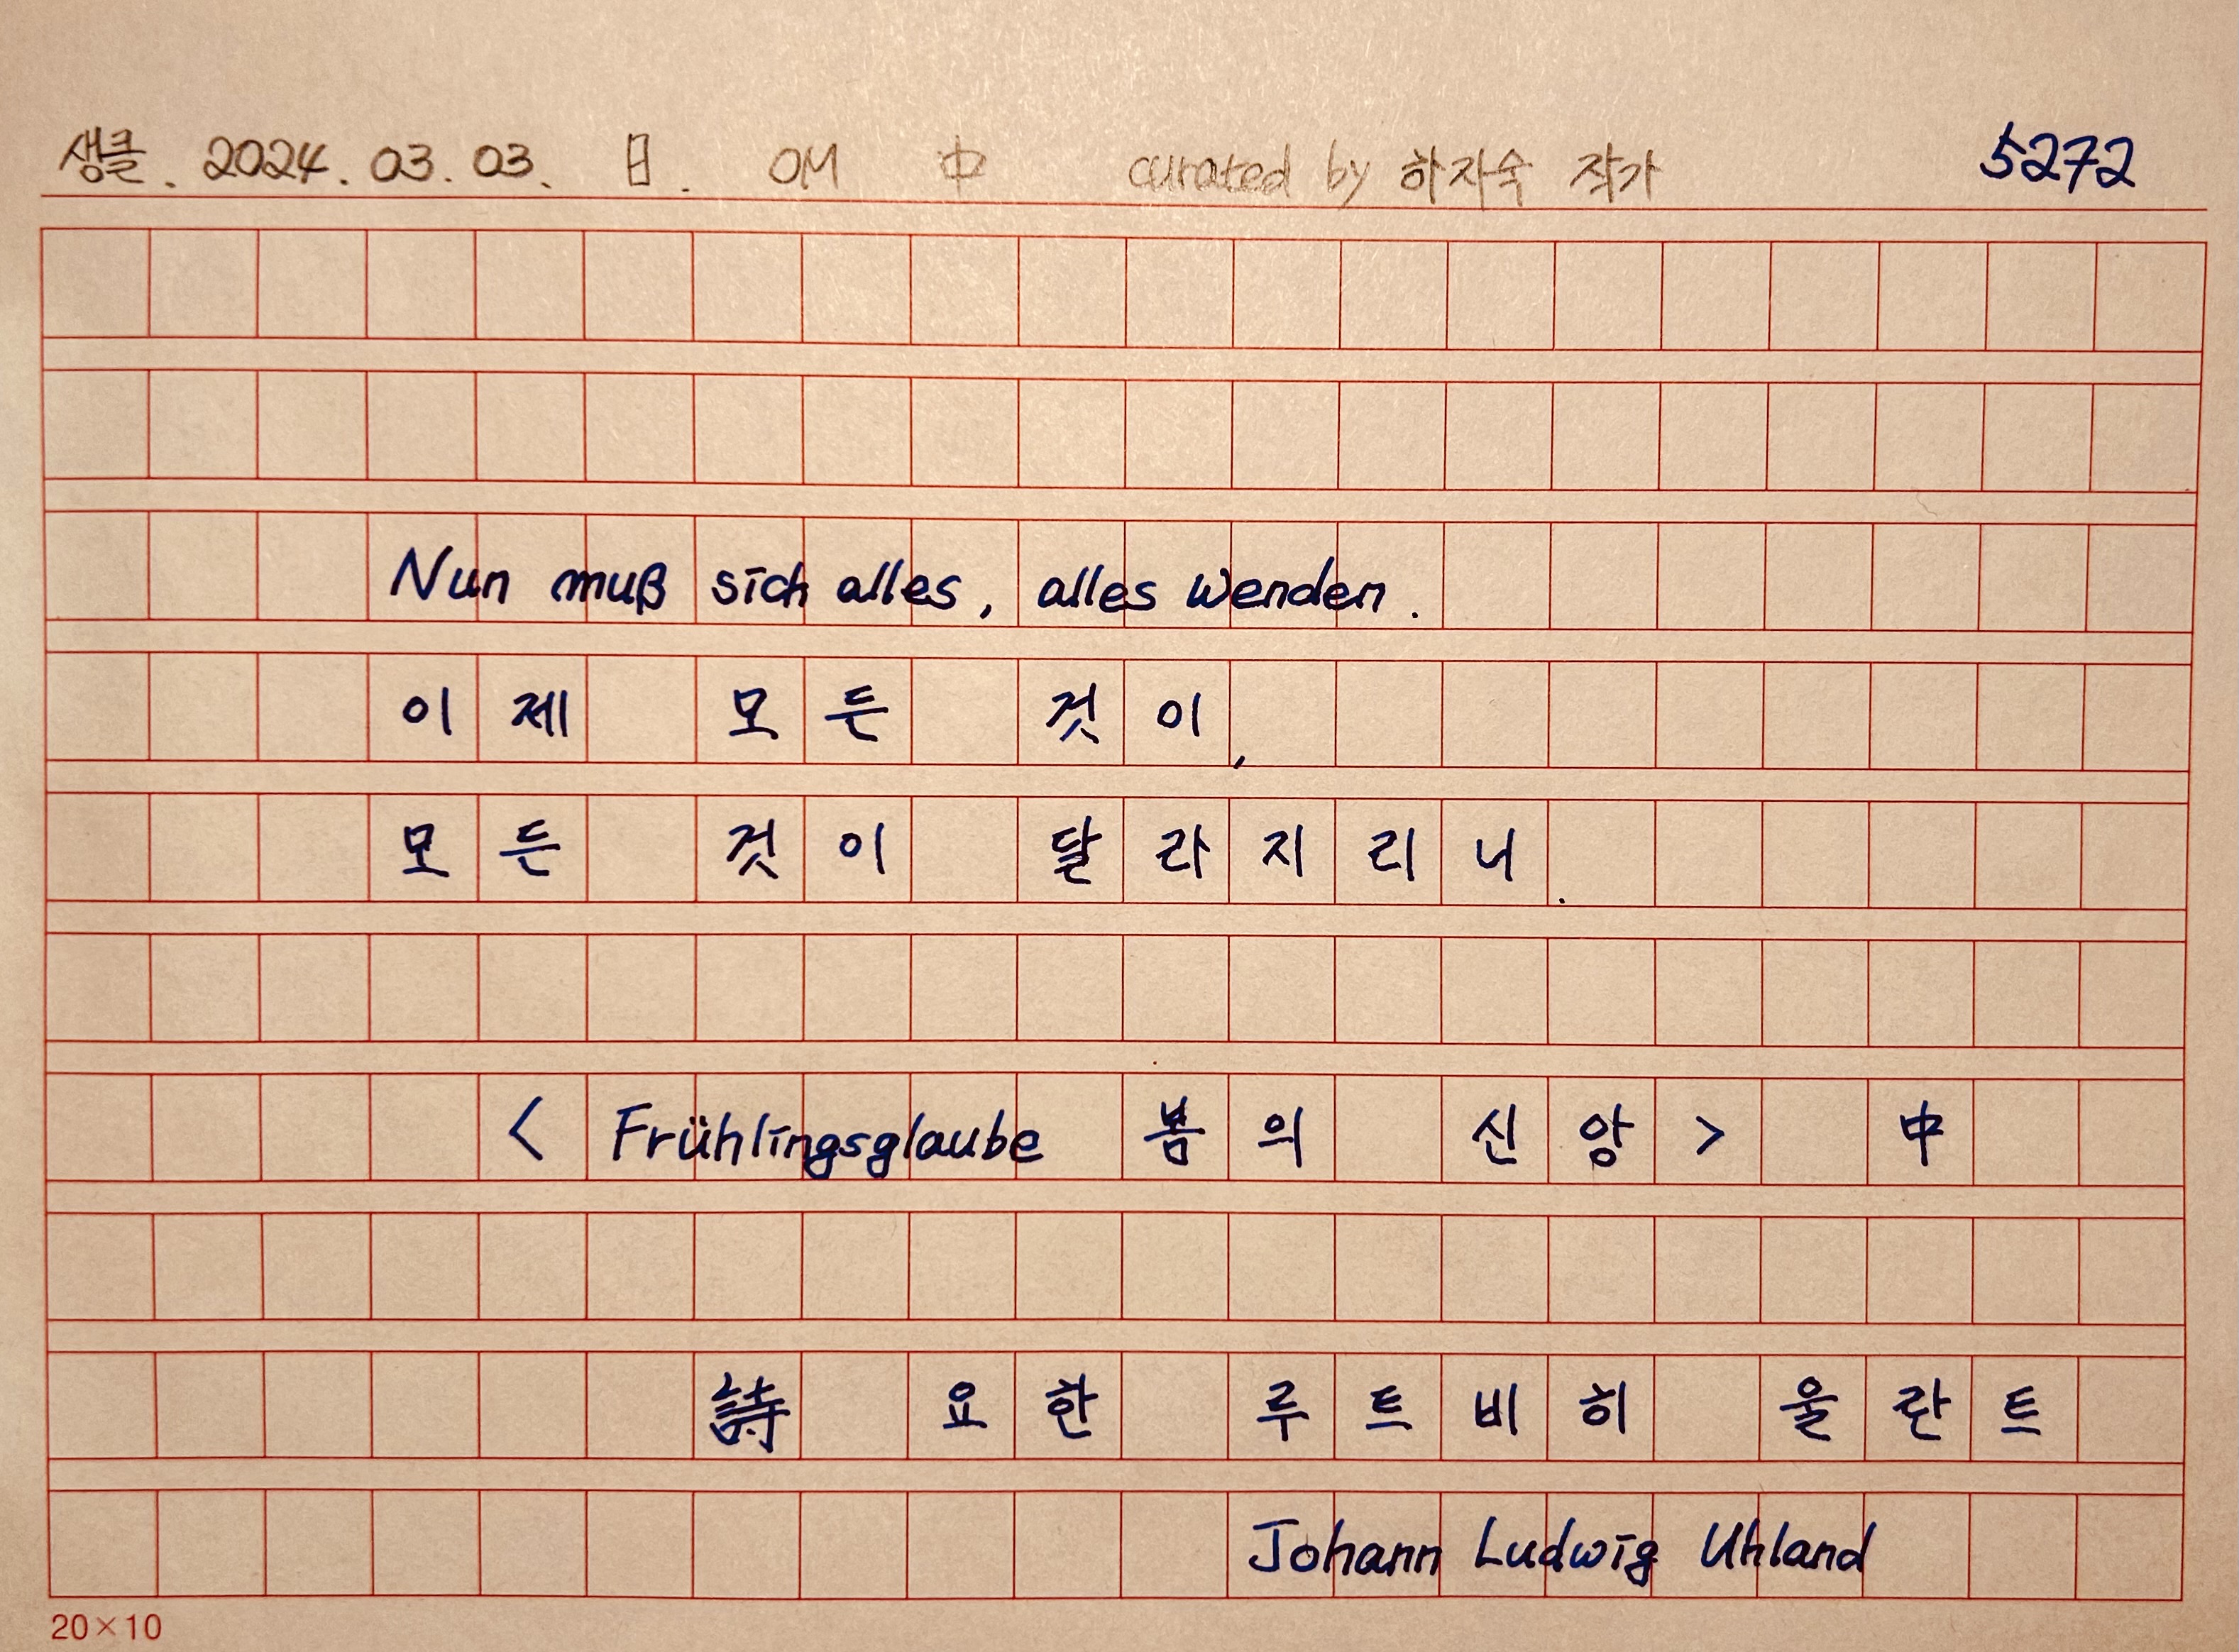 생클. 2024. 03. 03. 日. OM 中 curated by 하지숙 작가 5272
Nun muß sich alles, alles wenden.
이제 모든 것이,
모든 것이 달라지리니.
< Frühlingsglaube 봄의 신앙> 中
詩 요한 루트비히 울란트
Johann Ludwig Uhland
20×10